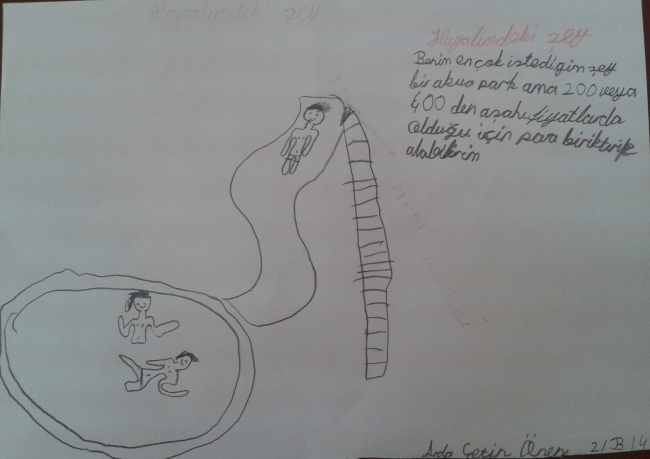 Hayalimdeki şey
Benim en çok istediğim şey
bir akua park ama 200 veya
400 den aşahı fiyatlarda
olduğu için para biriktirip
alabilirim
Arda Çetin Ören 2/B 14